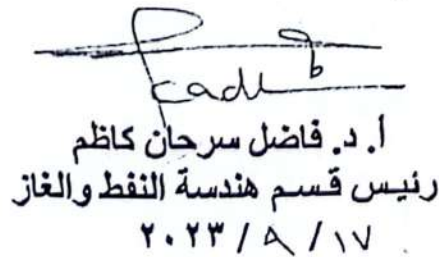 أ. د. فاضل سرحان كاظم
رئيس قسم هندسة النفط والغاز
٢٠٢٣ / ٨ / ١٧